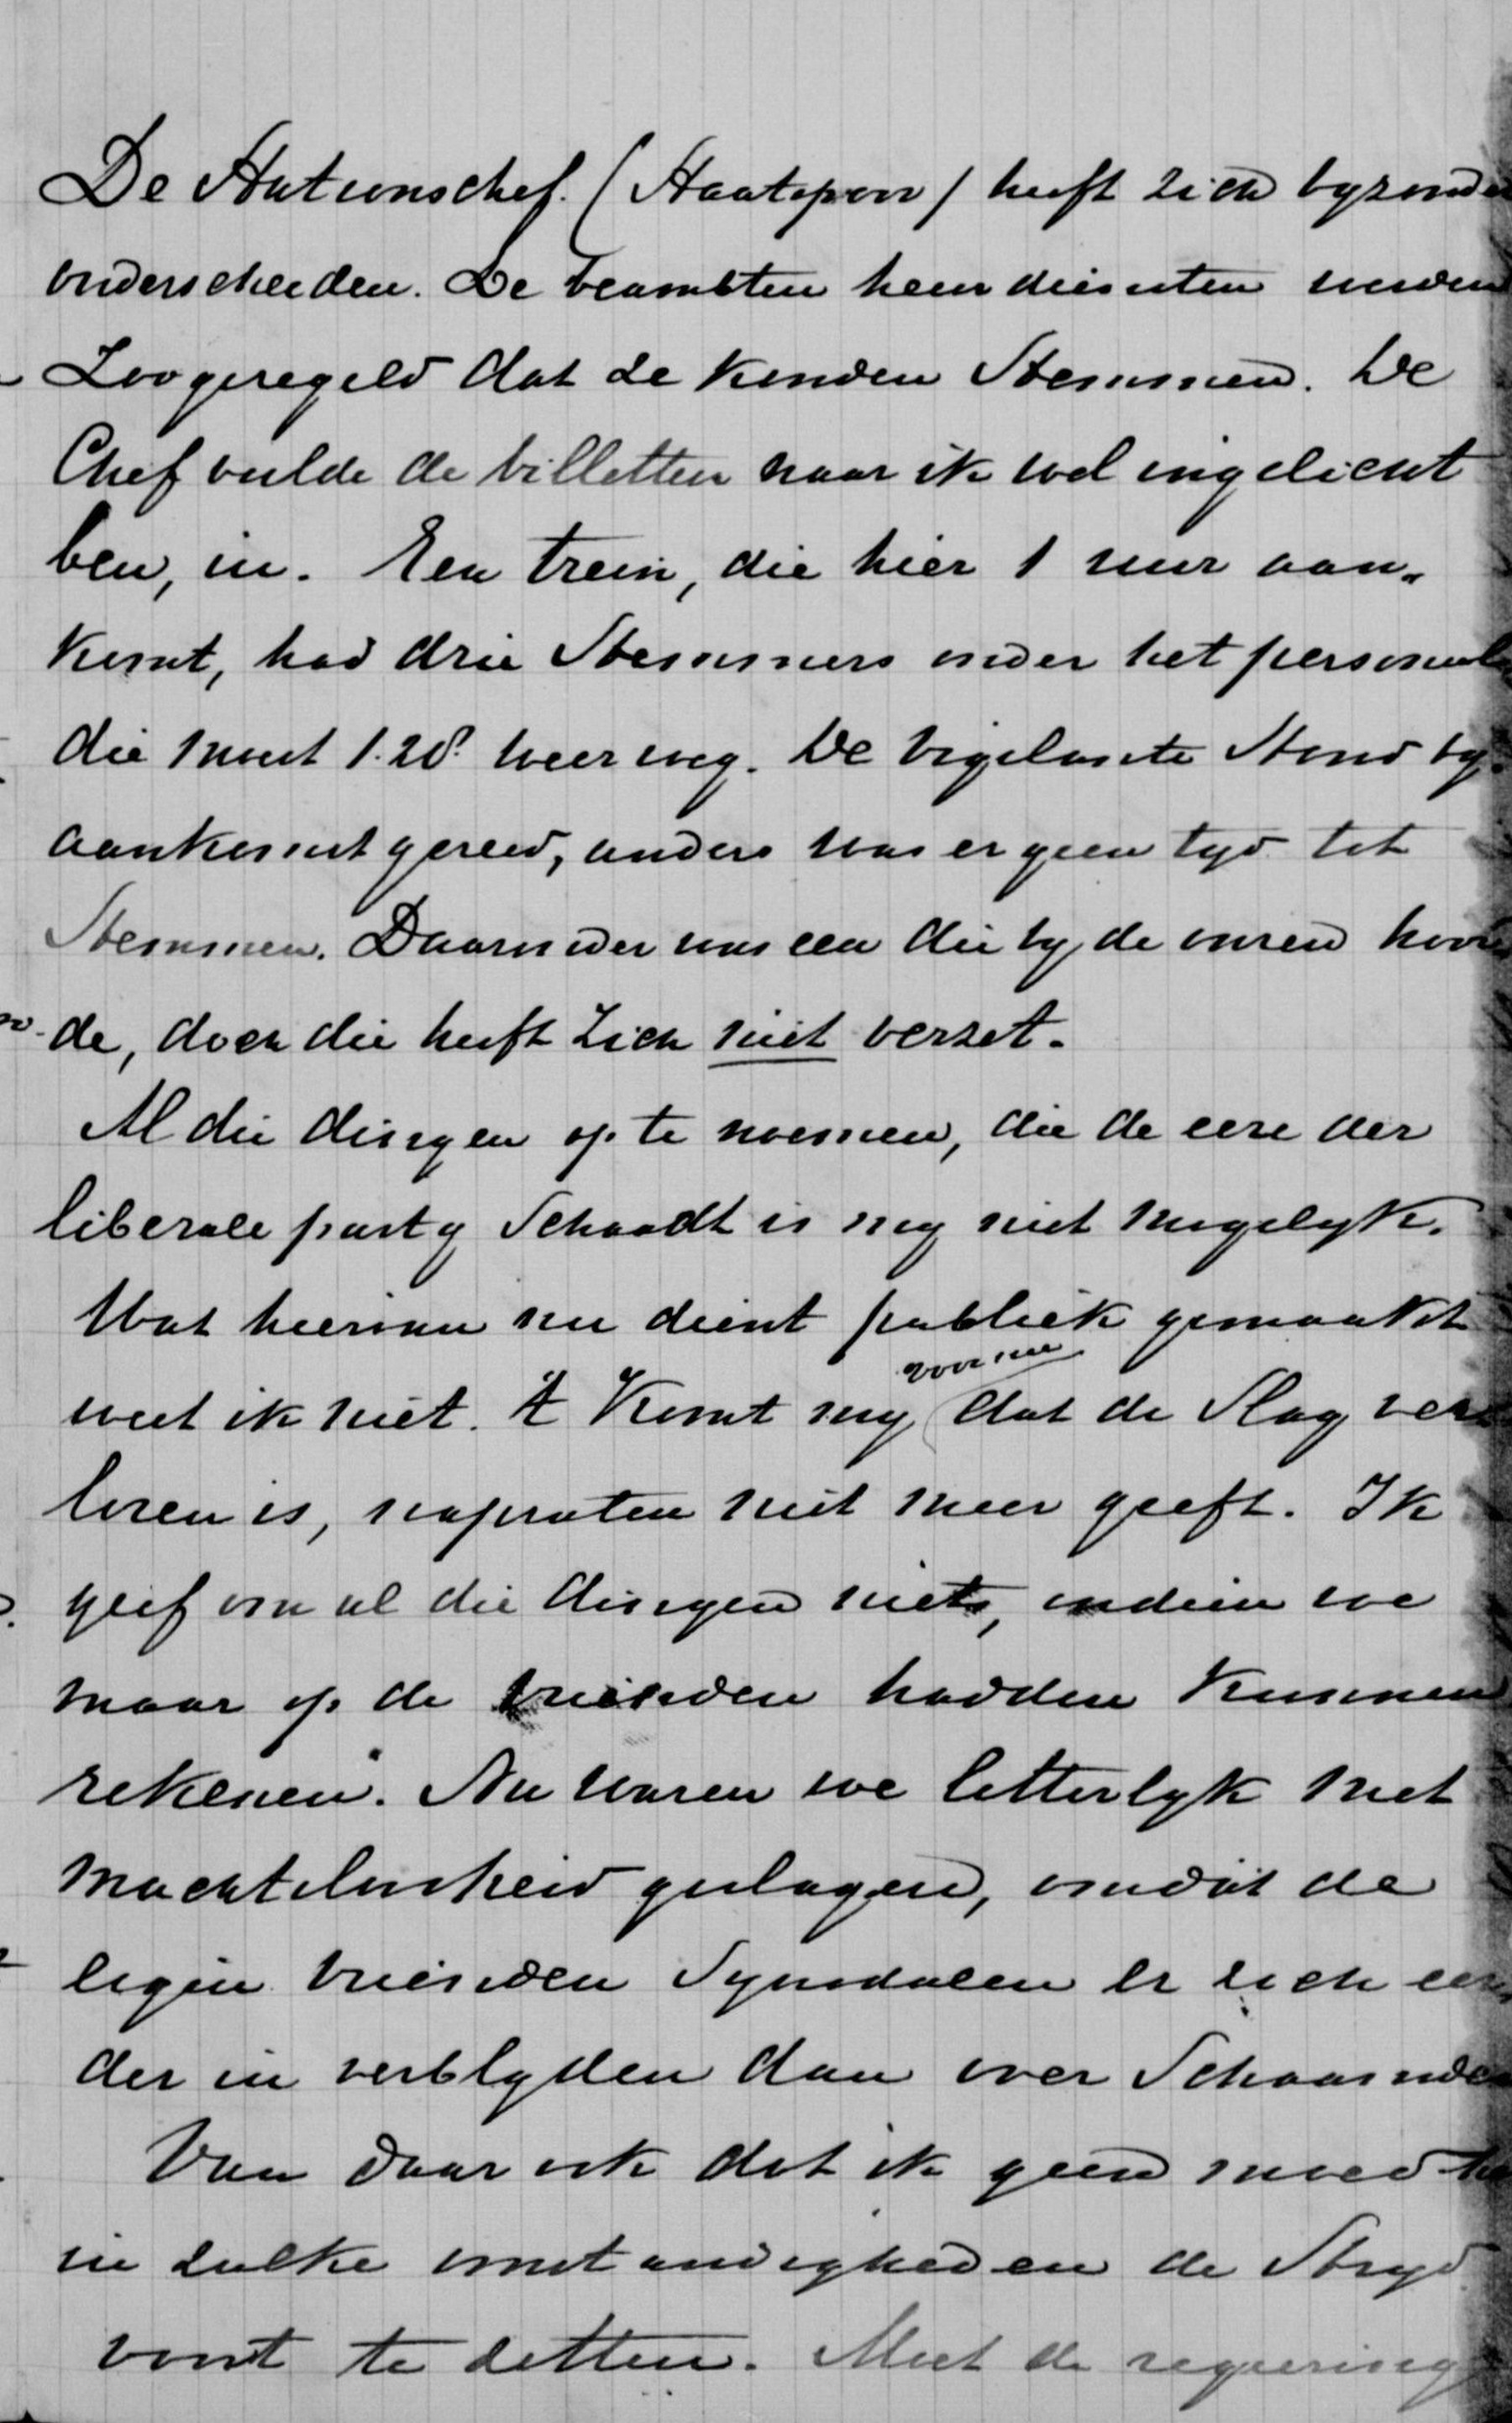 De Stationschef. (Staatspoor) heeft zich byzonder
onderscheiden. De beambten hun diensten werden
Zoo geregeld dat ze konden Stemmen. De
Chef vulde de billetten naar ik wel ingelicht
ben, in. Een trein, die hier 1 uur aan-
komt, had drie Stemmers onder het personeel
die moest 1.20 weer weg. De vigelante Stond by
aankomst gereed, anders was er geen tyd tot
Stemmen. Daaronder was een die by de onzen hoor
de, doch die heeft zich niet verzet.
Al die dingen op te noemen, die de eere der
liberale party Schaadt is nog niet mogelyk.
Wat hiervan nu dient publiek gemaakt
weet ik niet. 't Komt my voor nu dat de Slag ver
loren is, napraten niet meer geeft. Ik
geef om al die dingen niets, indien we
maar op de vrienden hadden kunnen
rekenen. Nu waren we letterlyk met
machteloosheid geslagen, omdat de
eigen vrienden Synodalen er zich eer
der in verblyden dan over Schaamden
Van daar ook dat ik geen moed
in zulke omstandigheden de Stryd
voort te zetten. Met de regeering